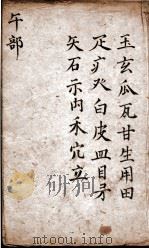 玉玄瓜瓦甘生用田
疋疒癶白皮皿目矛
矢石示禸禾穴立
午部